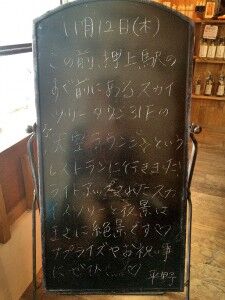 11月12日(木)
この前、押上駅の
すぐ前にあるスカイ
ツリータウン31Fの
天空ラウンジという
レストランに行きました
ライトアップされたスカ
イツリーと夜景は
まさに絶景です♡
サプライズやお祝い事
にぜひ…♡